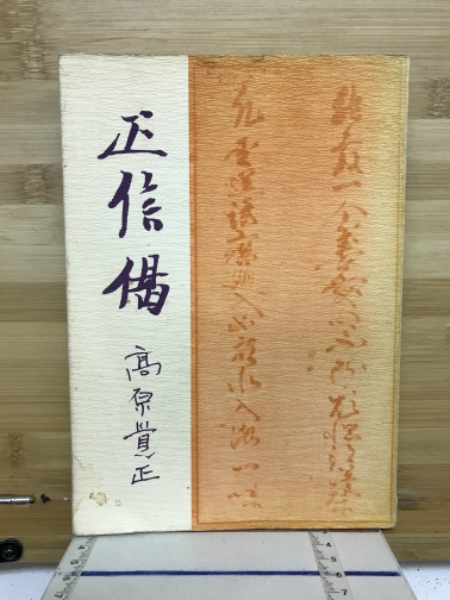 正信偈
髙原覚正
能發一念喜愛心不断煩悩得涅槃
凡聖逆謗斉廻入如衆水入海一味